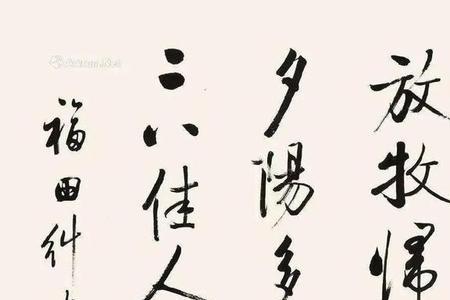 放牧歸
夕陽多
二八佳人
福田糾